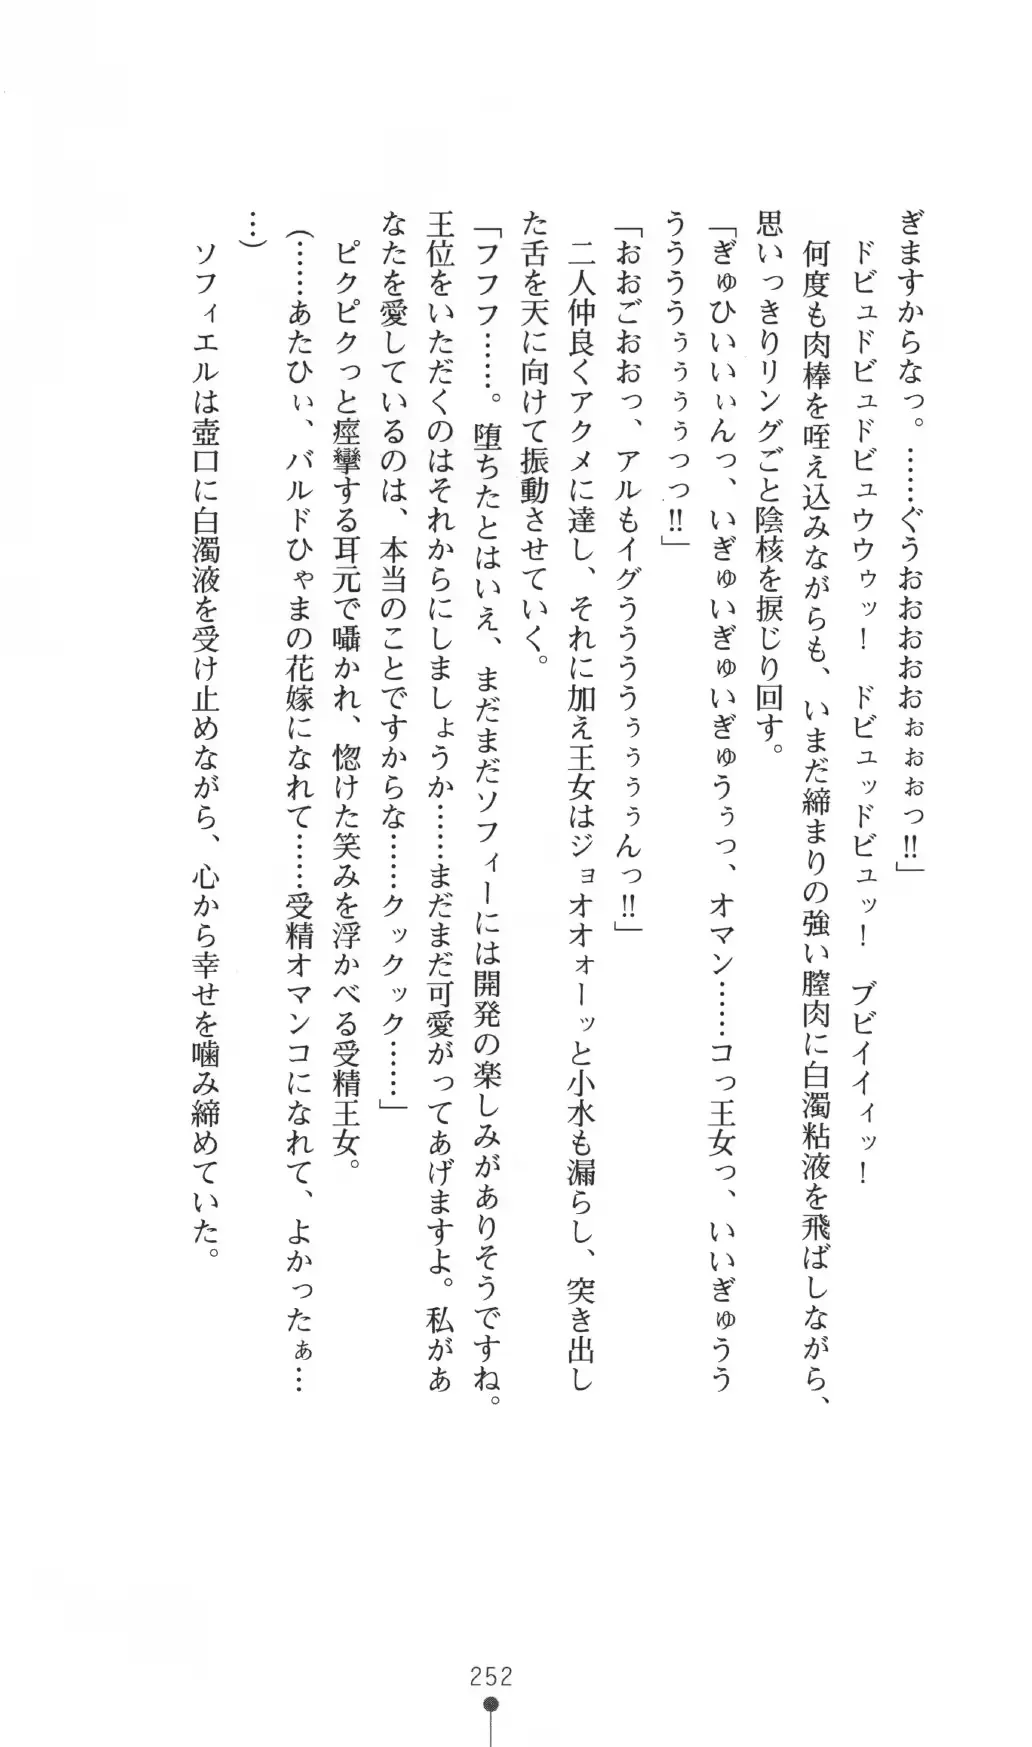 ぎますからなっ。……ぐうおおおおぉぉぉっ‼」
　ドビュドビュドビュウウゥッ！　ドビュッドビュッ！　ブビイイィッ！
　何度も肉棒を咥え込みながらも、いまだ締まりの強い膣肉に白濁粘液を飛ばしながら、
思いっきりリングごと陰核を捩じり回す。
「ぎゅひいいぃんっ、いぎゅいぎゅいぎゅうぅっ、オマン……コっ王女っ、いいぎゅうう
うううぅぅぅぅっっ‼」
「おおごおおっ、アルもイグうううぅぅぅぅんっ‼」
　二人仲良くアクメに達し、それに加え王女はジョオオォーッと小水も漏らし、突き出し
た舌を天に向けて振動させていく。
「フフフ……。堕ちたとはいえ、まだまだソフィーには開発の楽しみがありそうですね。
王位をいただくのはそれからにしましょうか……まだまだ可愛がってあげますよ。私があ
なたを愛しているのは、本当のことですからな……クックック……」
　ピクピクっと痙攣する耳元で囁かれ、惚けた笑みを浮かべる受精王女。
（……あたひぃ、バルドひゃまの花嫁になれて……受精オマンコになれて、よかったぁ…
…）
　ソフィエルは壺口に白濁液を受け止めながら、心から幸せを噛み締めていた。
252